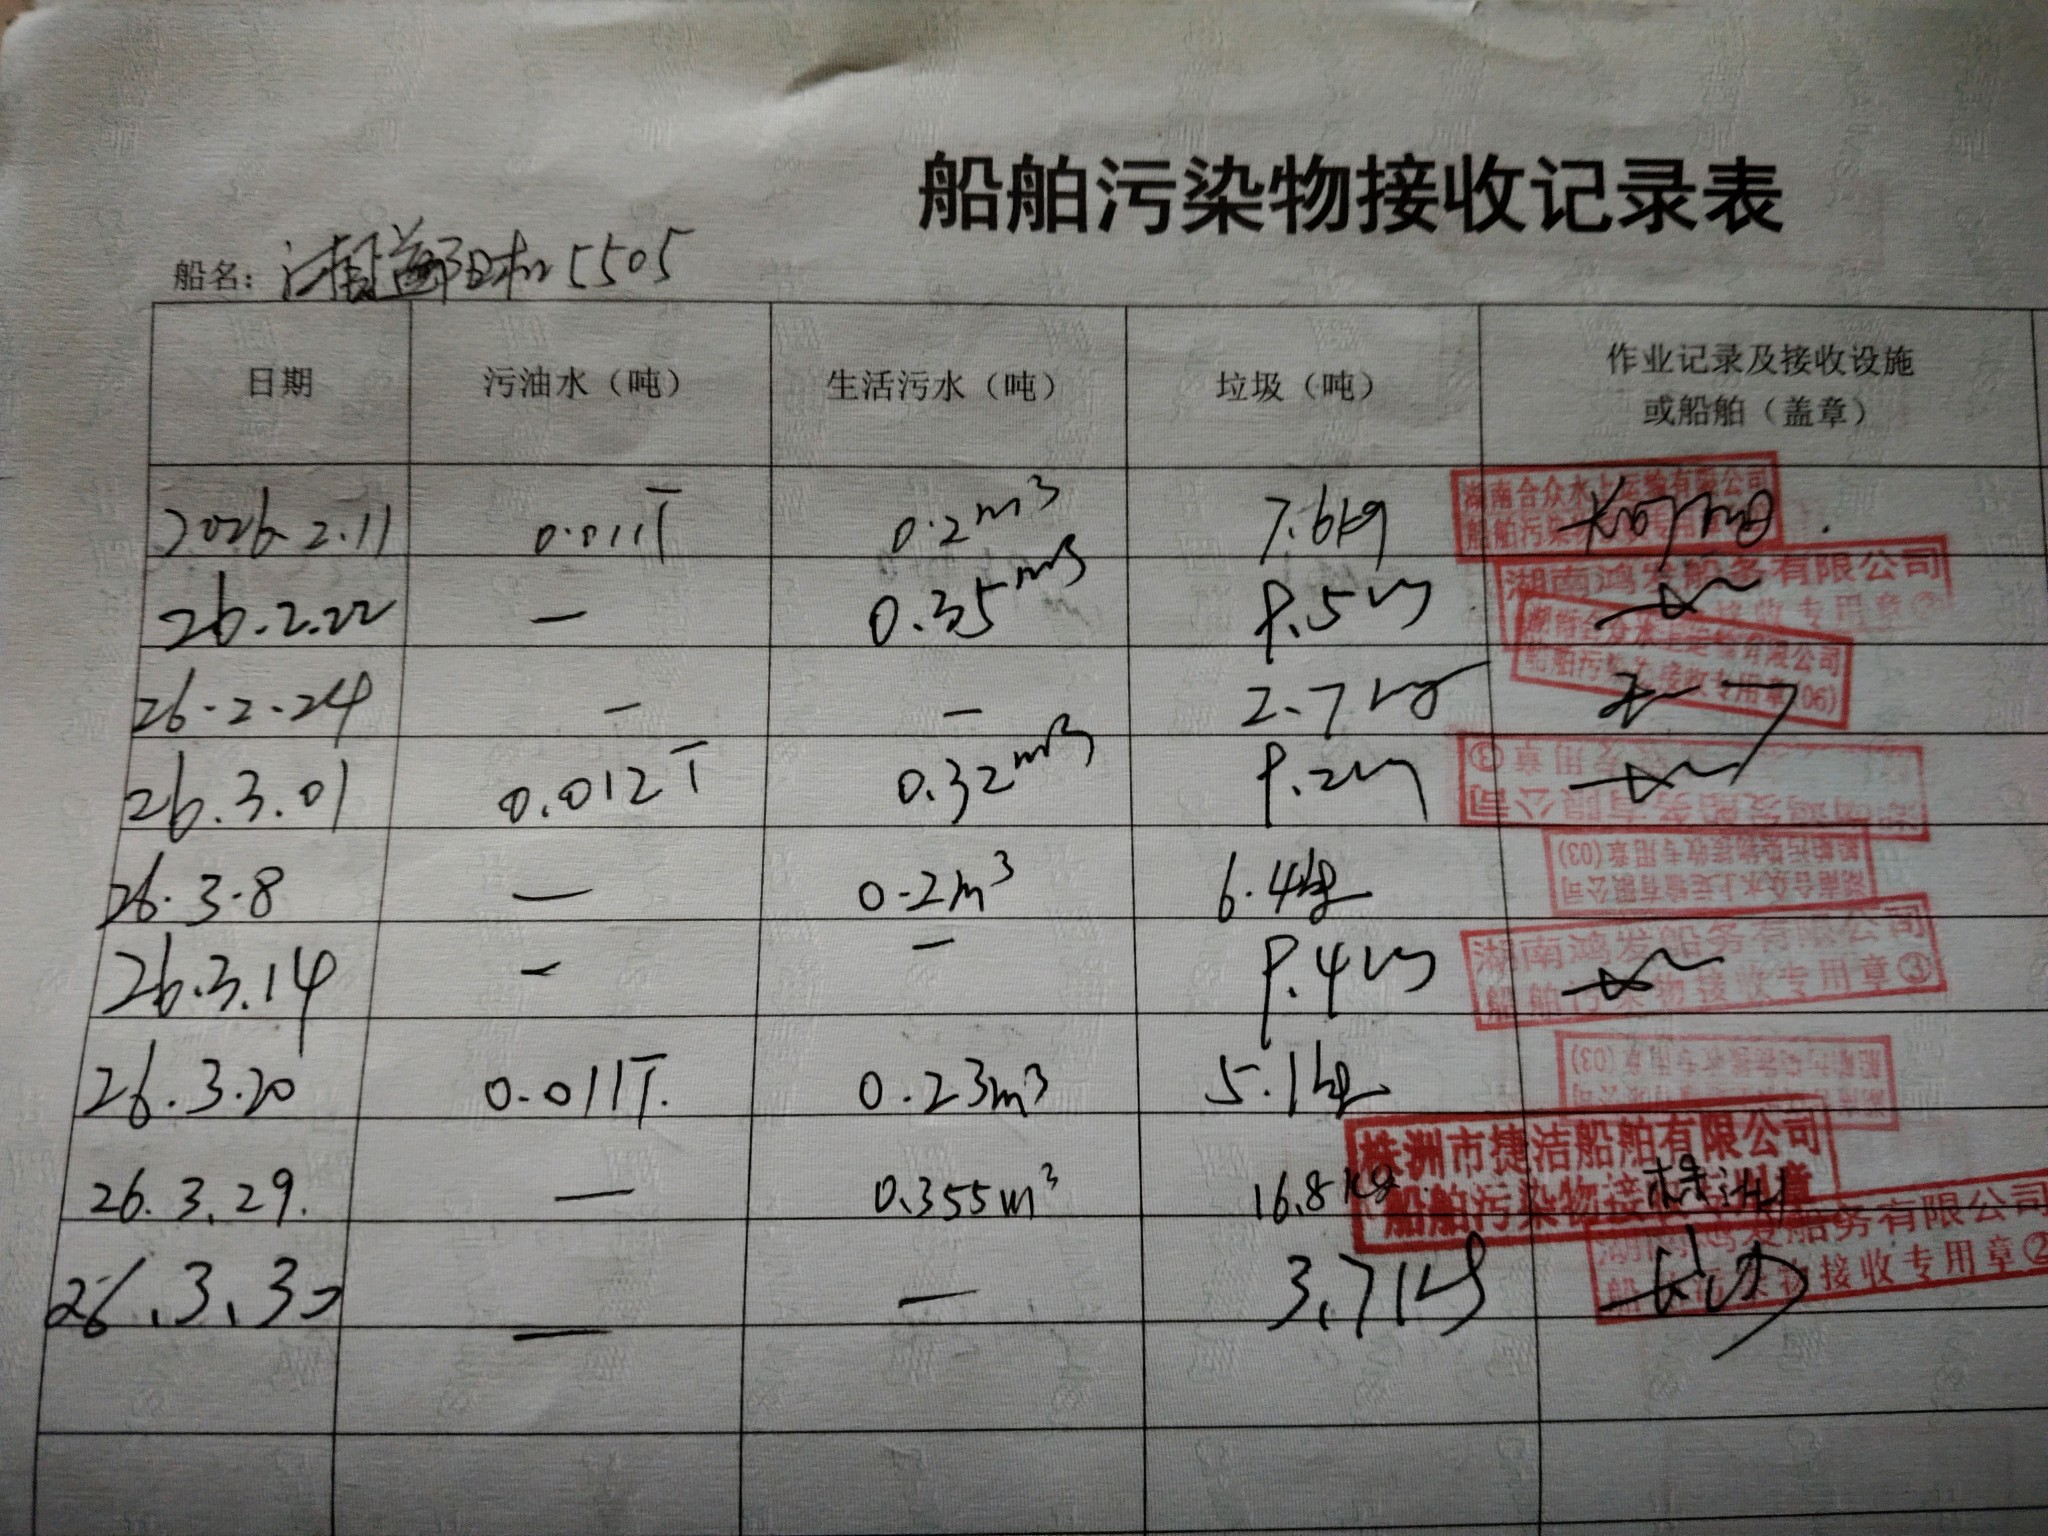 船舶污染物接收记录表
船名: 湘 5505
日期 污油水（吨） 生活污水（吨） 垃圾（吨） 作业记录及接收设施
或船舶（盖章）
2026.2.11 0.011T 0.2m³ 7.6kg
湖南合众水上运输有限公司
26.2.22 — 0.35m³
湖南鸿发船务有限公司
接收专用章②
26.2.24 — — 2.7kg
湖南合众水上运输有限公司
船舶污染物接收专用章(06)
26.3.01 0.012T 0.32m³
湖南鸿发船务有限公司
专用章③
26.3.8 — 0.2m³ 6.4kg
湖南合众水上运输有限公司
船舶污染物接收专用章(03)
26.3.14 — —
湖南鸿发船务有限公司
船舶污染物接收专用章③
26.3.20 0.011T. 0.23m³ 5.1kg
专用章(03)
26.3.29. — 0.355m³ 16.8kg 株洲
株洲市捷洁船舶有限公司
船舶污染物接
26.3.30 — — 3.7kg 长沙
湖南鸿发船务有限公司
船舶污染物接收专用章②